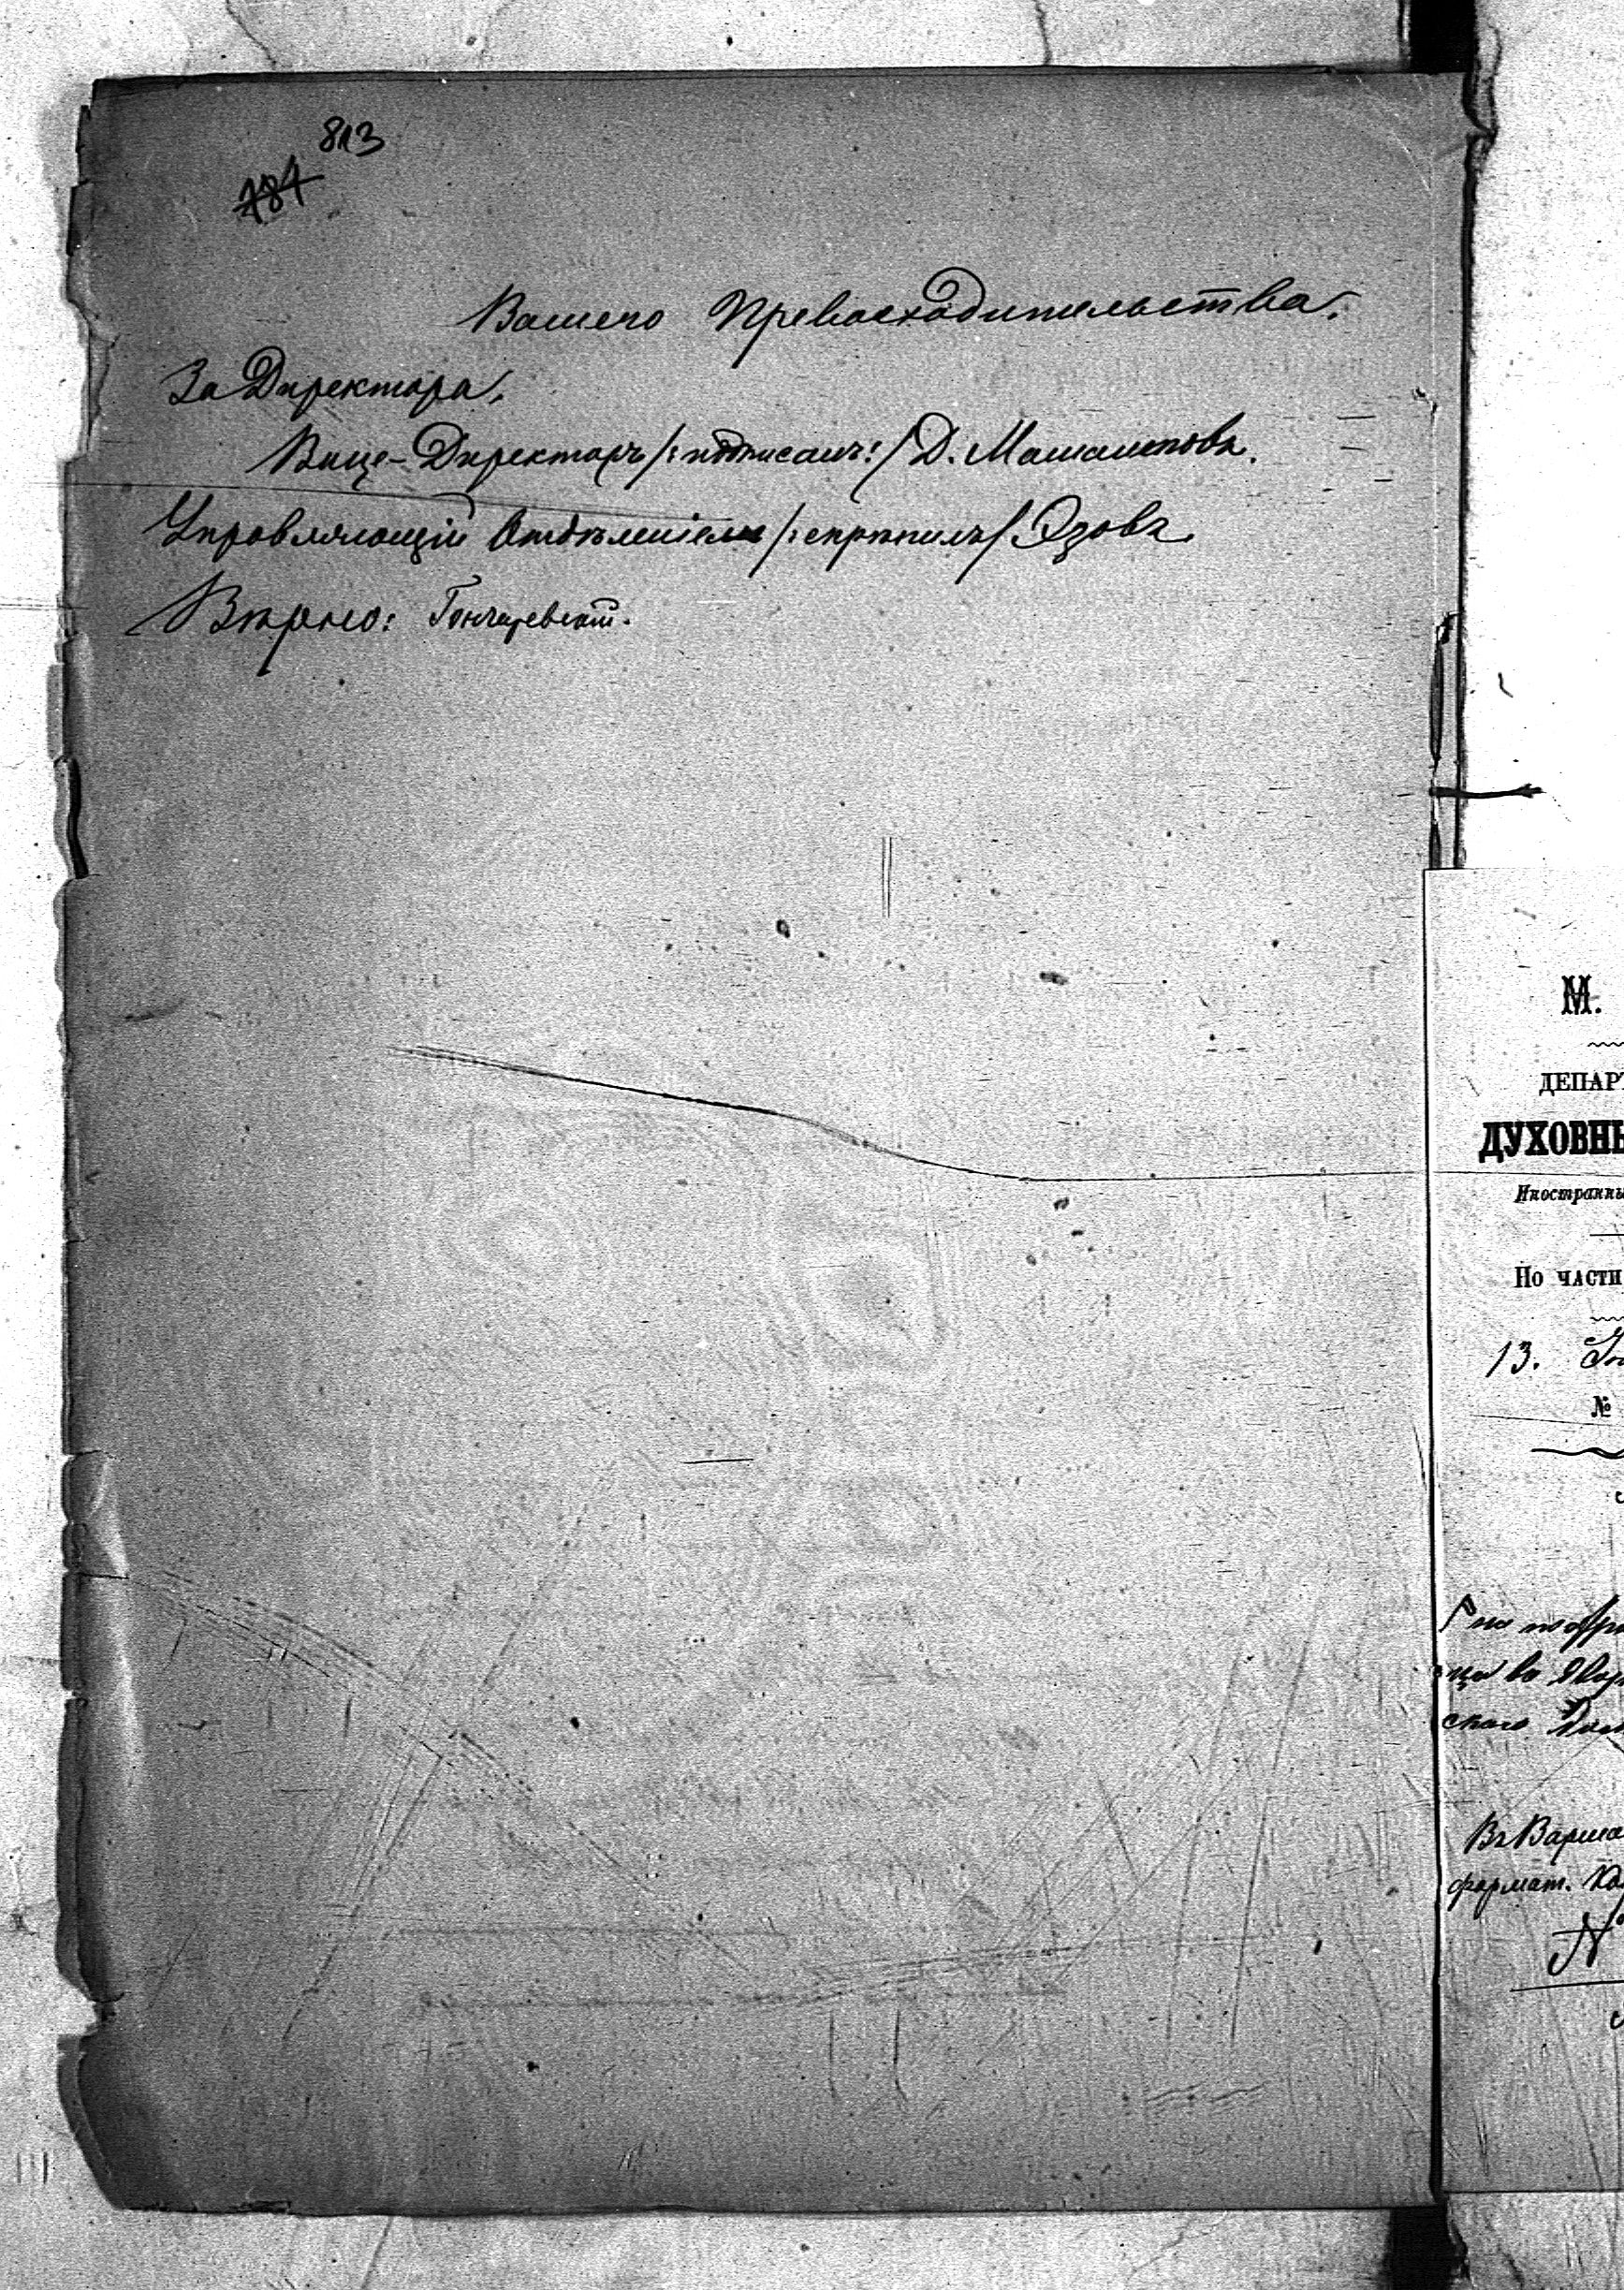 813
787
Вашего Превосходительства.
За Директора,
Вице-Директоръ /:подписалъ:/ Д.
Управляющій Отдѣленіемъ /:скрѣпилъ/ Эзовъ
Вѣрно:
М.
ДЕПАР
ДУХОВН
Иностранны
По части
13.
№
на
ца во
скаго
Въ Варша
формат.
№